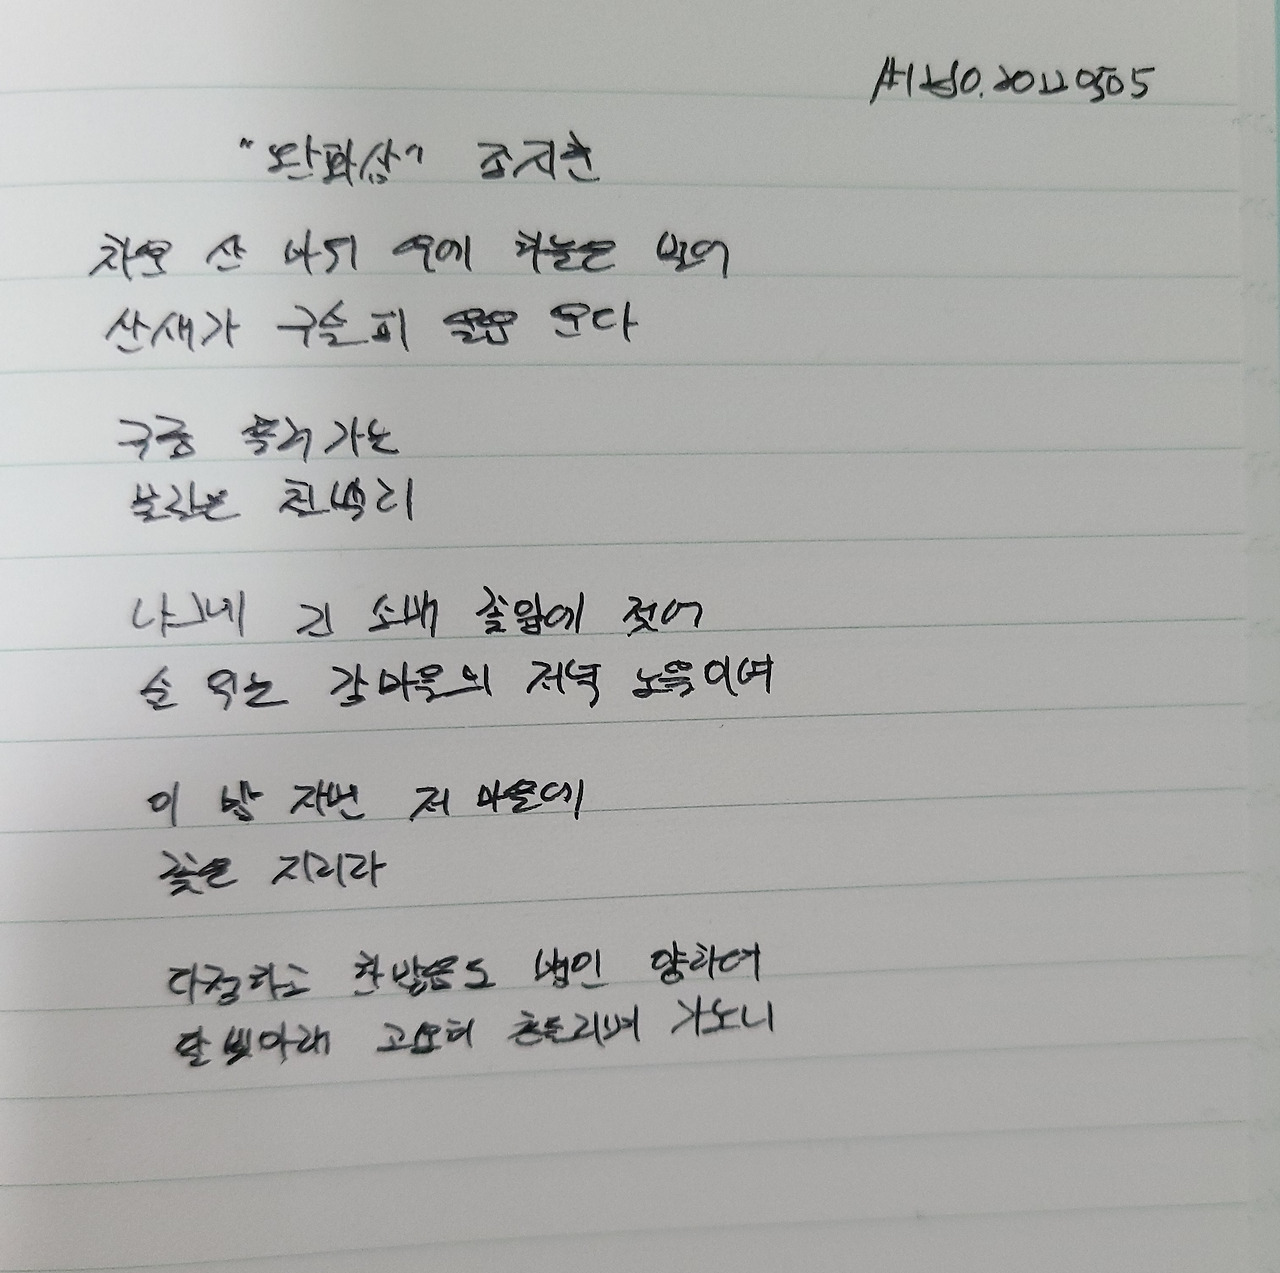 20220505
"완화삼" 조지훈
차운 산 바위 우에 하늘은 멀어
산새가 구슬피 울음 운다
구름 흘러가는
물길은 칠백리
나그네 긴 소매 꽃잎에 젖어
술 익는 강마을의 저녁 노을이여
이 밤 자면 저 마을에
꽃은 지리라
다정하고 한 많음도 병인 양하여
달빛아래 고요히 흔들리며 가노니